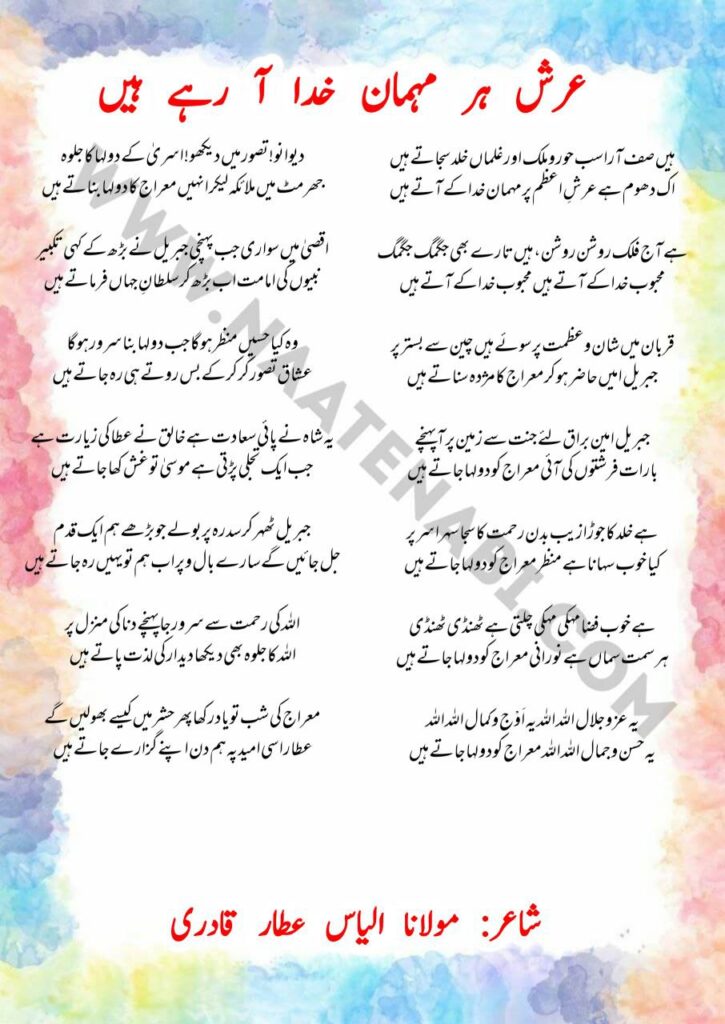 عرش ہر مہمان خدا آ رہے ہیں
ہیں صف آرا سب حور و ملک اور غلماں خلد سجاتے ہیں
اک دھوم ہے عرشِ اعظم پر مہمان خدا کے آتے ہیں
ہے آج فلک روشن روشن، ہیں تارے بھی جگمگ جگمگ
محبوب خدا کے آتے ہیں محبوب خدا کے آتے ہیں
قربان میں شان و عظمت پر سوئے ہیں چین سے بستر پر
جبریل امیں حاضر ہو کر معراج کا مژدہ سناتے ہیں
جبریل امین براق لئے جنت سے زمیں پر آ پہنچے
بارات فرشتوں کی آئی معراج کو دولہا جاتے ہیں
ہے خلد کا جوڑا زیب بدن رحمت کا سجا سہرا سر پر
کیا خوب سہانا ہے منظر معراج کو دولہا جاتے ہیں
ہے خوب فضا مہکی مہکی چلتی ہے ٹھنڈی ٹھنڈی
ہر سمت سماں ہے نورانی معراج کو دولہا جاتے ہیں
یہ عز و جلال اللہ اللہ یہ اَوَج و کمال اللہ اللہ
یہ حسن و جمال اللہ اللہ معراج کو دولہا جاتے ہیں
دیوانو! تصور میں دیکھو! اسریٰ کے دولہا کا جلوہ
جھرمٹ میں ملائکہ لیکر انہیں معراج کا دولہا بناتے ہیں
اقصیٰ میں سواری جب پہنچی جبریل نے بڑھ کے کہی تکبیر
نبیوں کی امامت اب بڑھ کر سلطانِ جہاں فرماتے ہیں
وہ کیا حسیں منظر ہوگا جب دولہا بنا سرور ہوگا
عشاق تصور کر کر کے بس روتے ہی رہ جاتے ہیں
یہ شاہ نے پائی سعادت ہے خالق نے عطا کی زیارت ہے
جب ایک تجلی پڑتی ہے موسیٰ تو غش کھا جاتے ہیں
جبریل ٹھہر کر سدرہ پر بولے جو بڑھے ہم ایک قدم
جل جائیں گے سارے بال و پر اب ہم تو یہیں رہ جاتے ہیں
اللہ کی رحمت سے سرور جا پہنچے دنا کی منزل پر
اللہ کا جلوہ بھی دیکھا دیدار کی لذت پاتے ہیں
معراج کی شب تو یاد رکھا پھر حشر میں کیسے بھولیں گے
عطار اسی امید پہ ہم دن اپنے گزارے جاتے ہیں
شاعر: مولانا الیاس عطار قادری
WWW.NAATENABI.COM